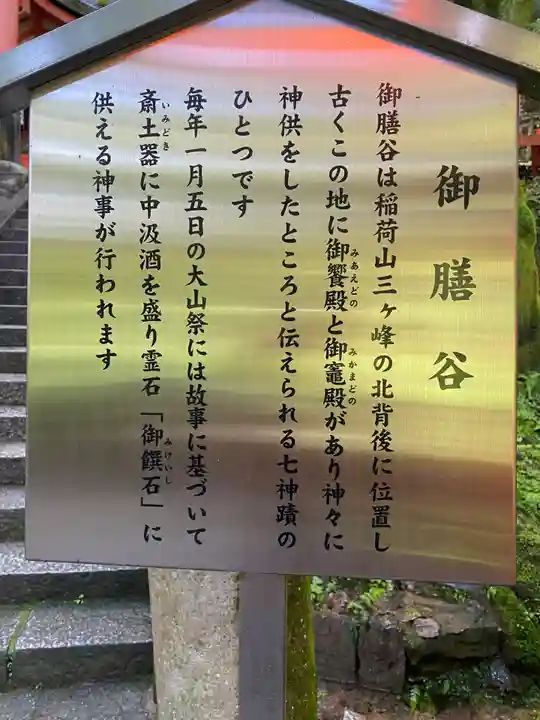 御膳谷
御膳谷は稲荷山三ヶ峰の北背後に位置し
古くこの地に御饗殿と御竈殿があり神々に
みあえどの
みかまどの
神供をしたところと伝えられる七神蹟の
ひとつです
毎年一月五日の大山祭には故事に基づいて
斎土器に中汲酒を盛り霊石「御饌石」に
いみどき
みけいし
供える神事が行われます